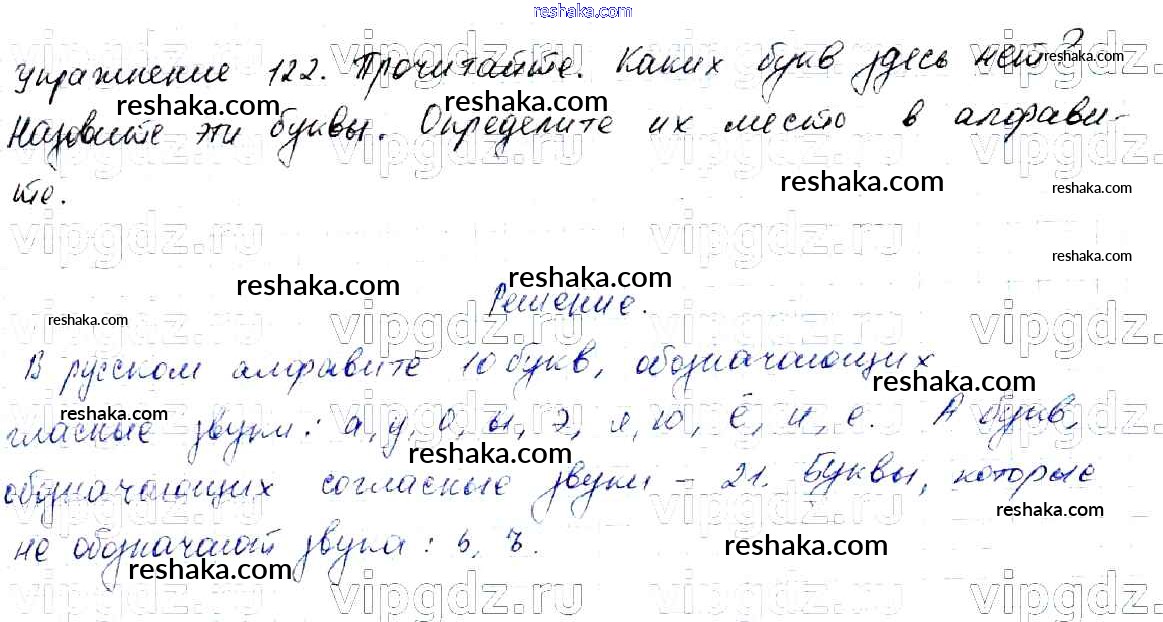 reshaka.com
Упражнение 122. Прочитайте. Каких букв здесь нет?
reshaka.com
reshaka.com reshaka.com
Назовите эти буквы. Определите их место в алфави-
vipgdz.ru vipgdz.ru vipgdz.ru
reshaka.com
reshaka.com
те.
vipgdz.ru vipgdz.ru
reshaka.com
reshaka.com reshaka.com
Решение.
reshaka.com
vipgdz.ru vipgdz.ru vipgdz.ru
В русском алфавите 10 букв, обозначающих
reshaka.com
reshaka.com
гласные звуки: а, у, о, ы, э, я, ю, ё, и, е. А букв,
reshaka.com
обозначающих согласные звуки - 21. Буквы, которые
reshaka.com
не обозначают звука: ь, ъ.
reshaka.com reshaka.com
vipgdz.ru vipgdz.ru vipgdz.ru